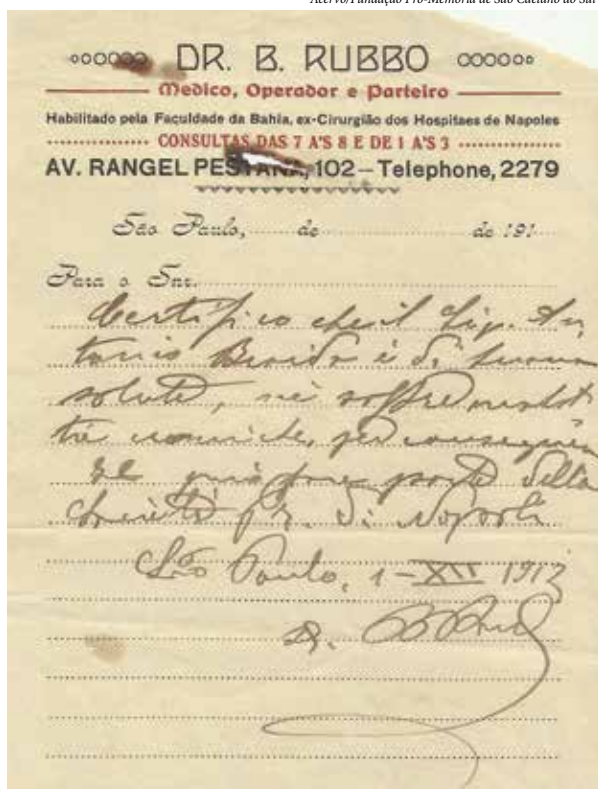 Acervo/Fundação Pró-Memória de São Caetano do Sul
DR. B. RUBBO
Medico, Operador e Parteiro
Habilitado pela Faculdade da Bahia, ex-Cirurgião dos Hospitaes de Napoles
CONSULTAS DAS 7 A'S 8 E DE 1 A'S 3
AV. RANGEL PESTANA, 102 – Telephone, 2279
São Paulo, de de 191
Para o Snr.
Certifico che il Sig. An
tonio è di buona
salute, né soffre malat
tie croniche, per conseguen
ze può fare parte della
Società Pr. di Napoli
São Paulo, 1-XII 1913